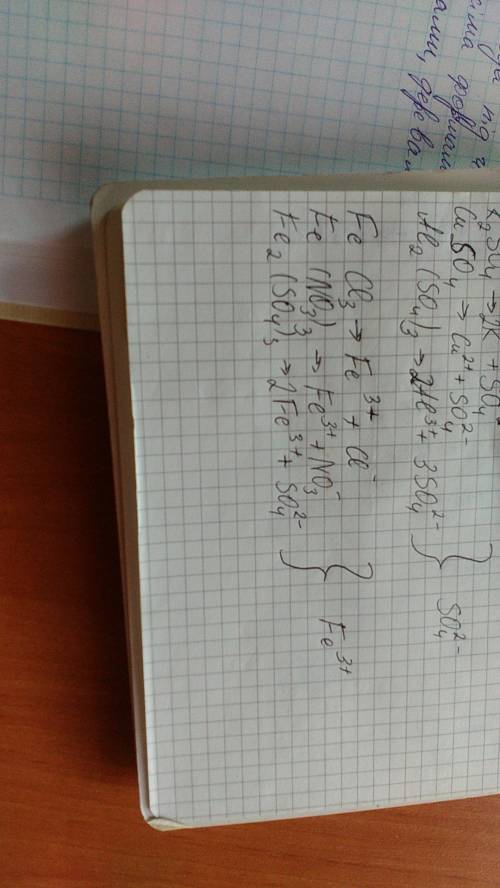 K₂SO₄ → 2K + SO₄
CuSO₄ → Cu²⁺ + SO₄²⁻
Al₂(SO₄)₃ → 2Al³⁺ + 3SO₄²⁻ } SO₄²⁻
FeCl₃ → Fe³⁺ + Cl⁻
Fe(NO₃)₃ → Fe³⁺ + NO₃⁻ } Fe³⁺
Fe₂(SO₄)₃ → 2Fe³⁺ + SO₄²⁻